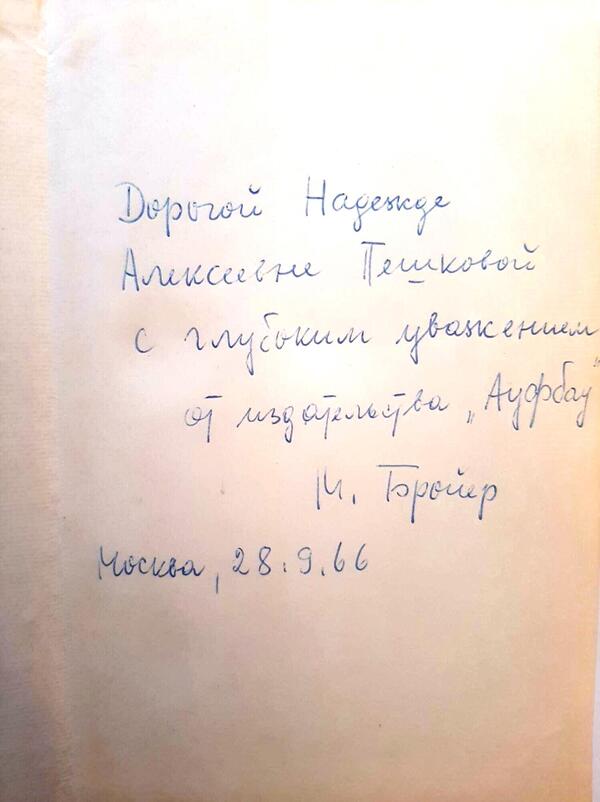 Дорогой Надежде
Алексеевне Пешковой
с глубоким уважением
от издательства „Ауфбау“
М. Бройер
Москва, 28.9.66